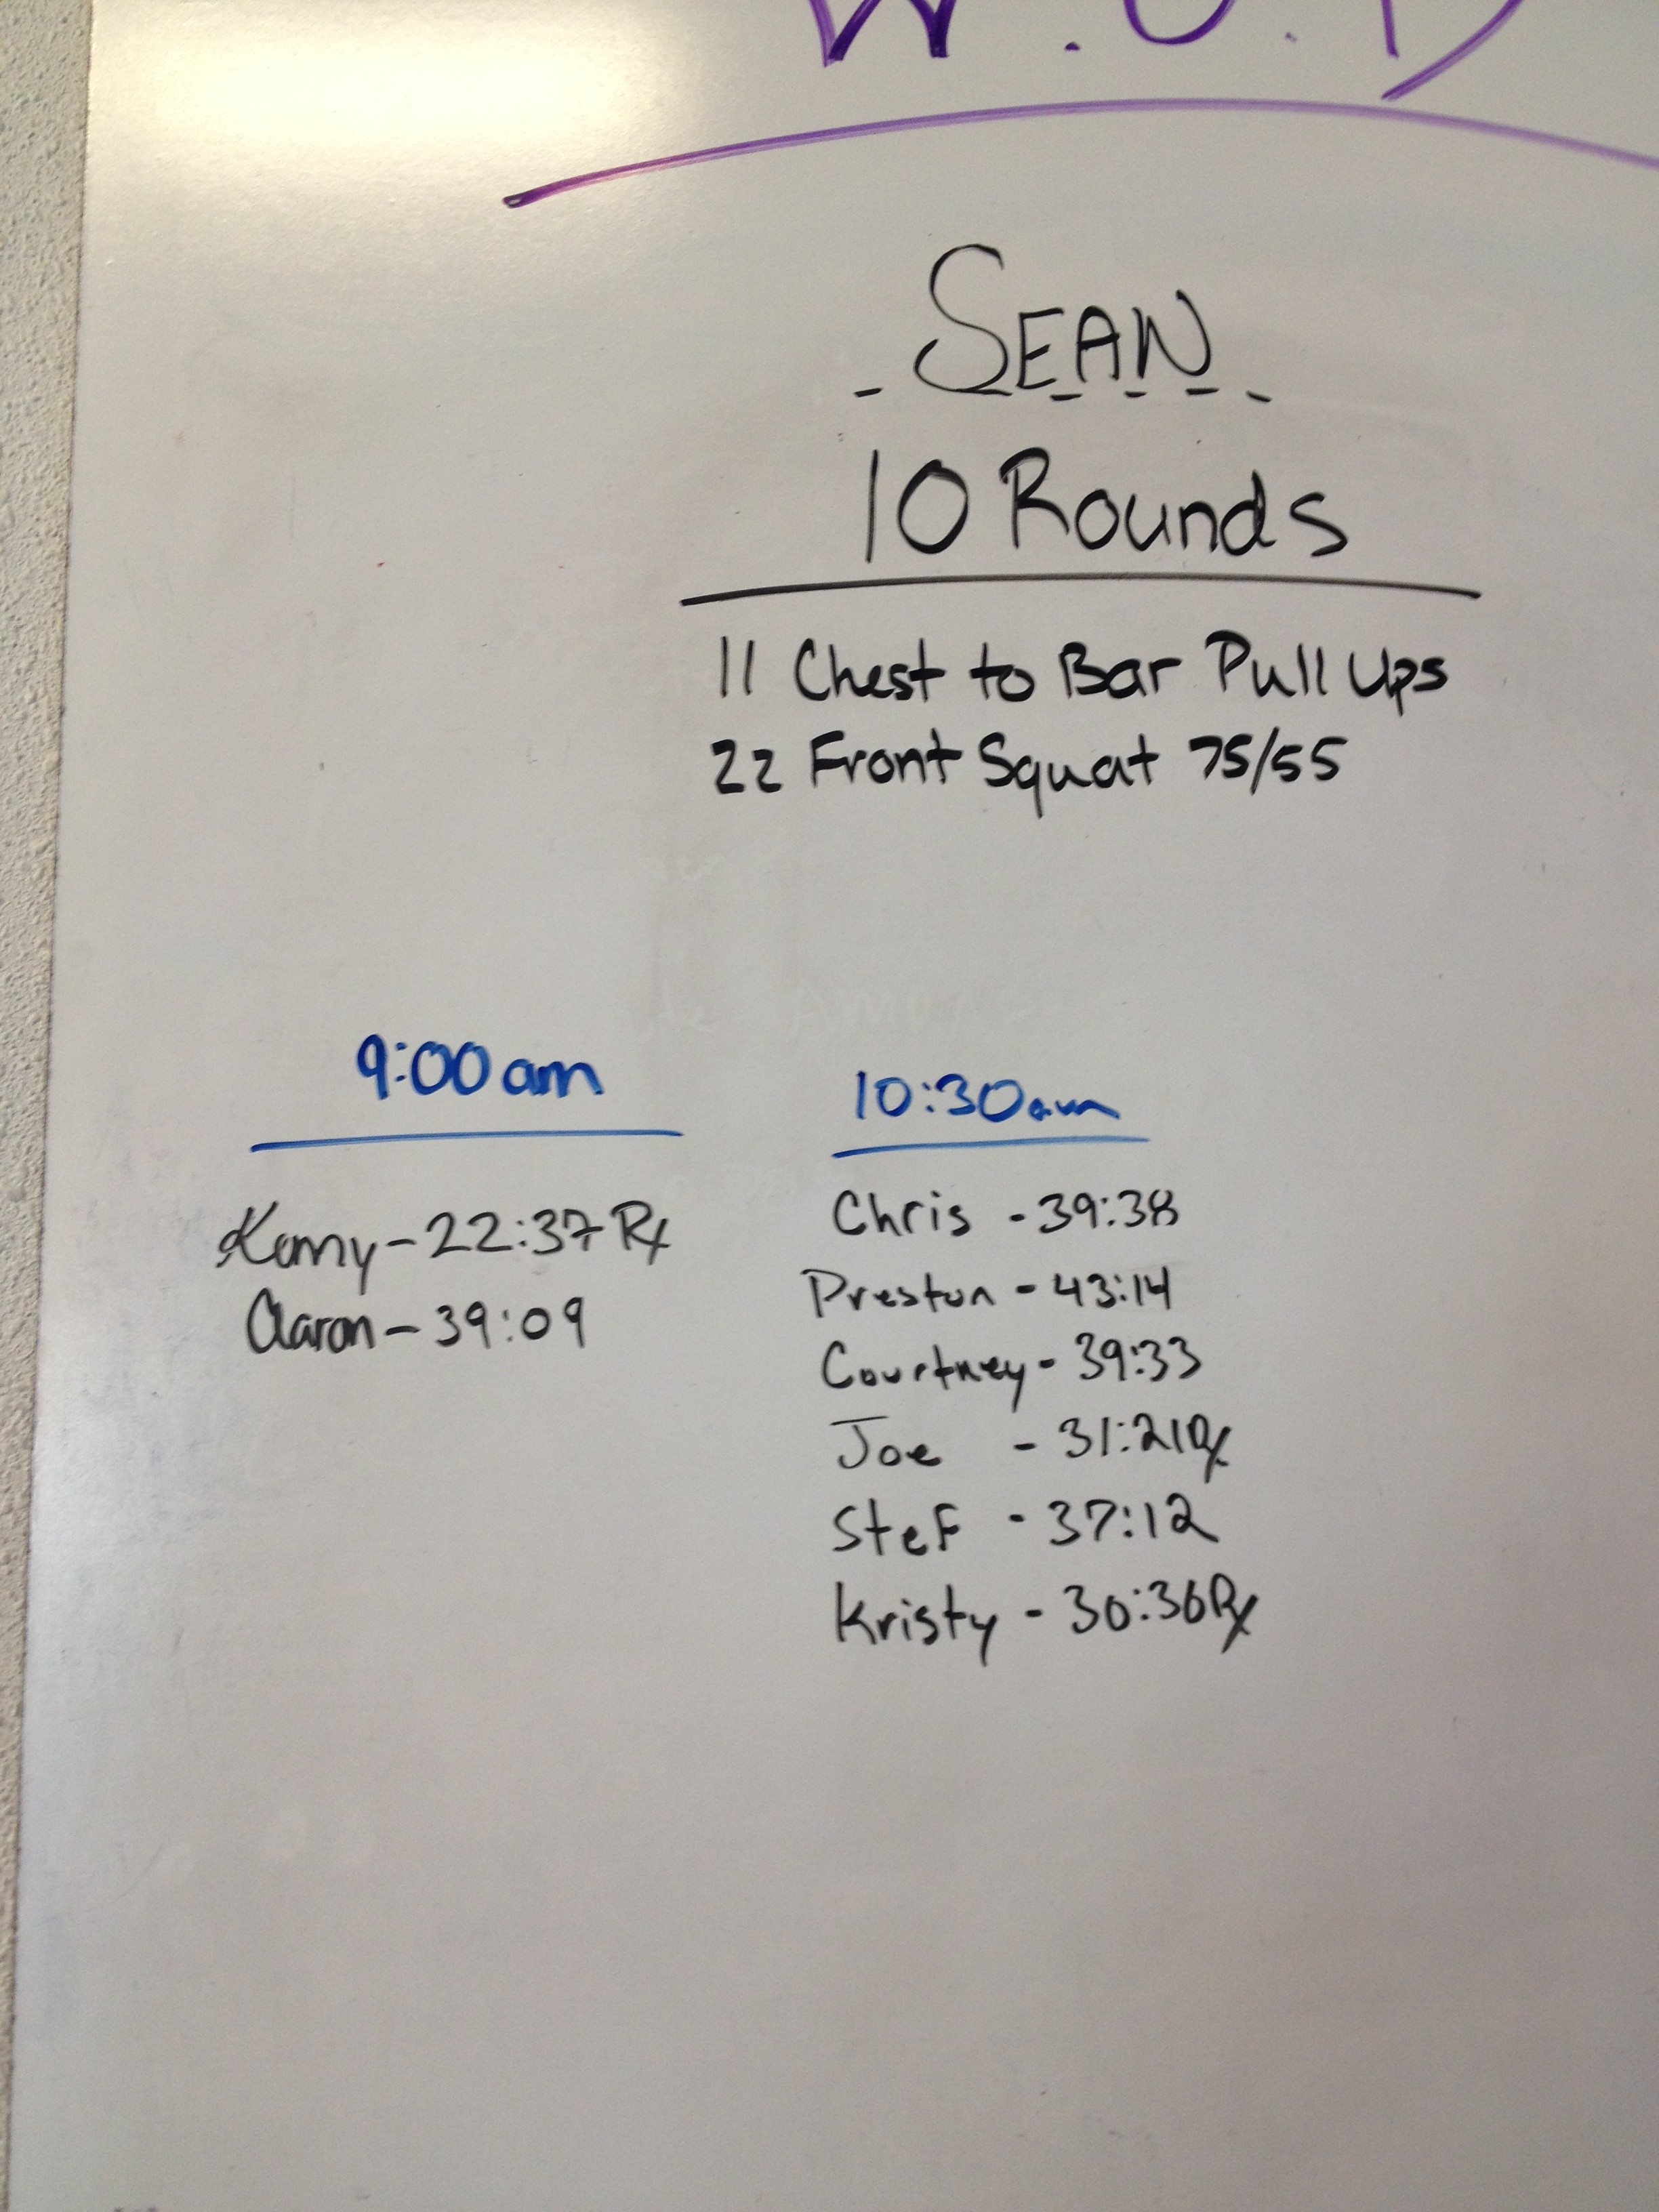 W.O.D
SEAN
10 Rounds
11 Chest to Bar Pull Ups
22 Front Squat 75/55
9:00am
Kenny - 22:37 Rx
Aaron - 39:09
10:30am
Chris - 39:38
Preston - 43:14
Courtney - 39:33
Joe - 31:21 Rx
Stef - 37:12
Kristy - 30:36 Rx